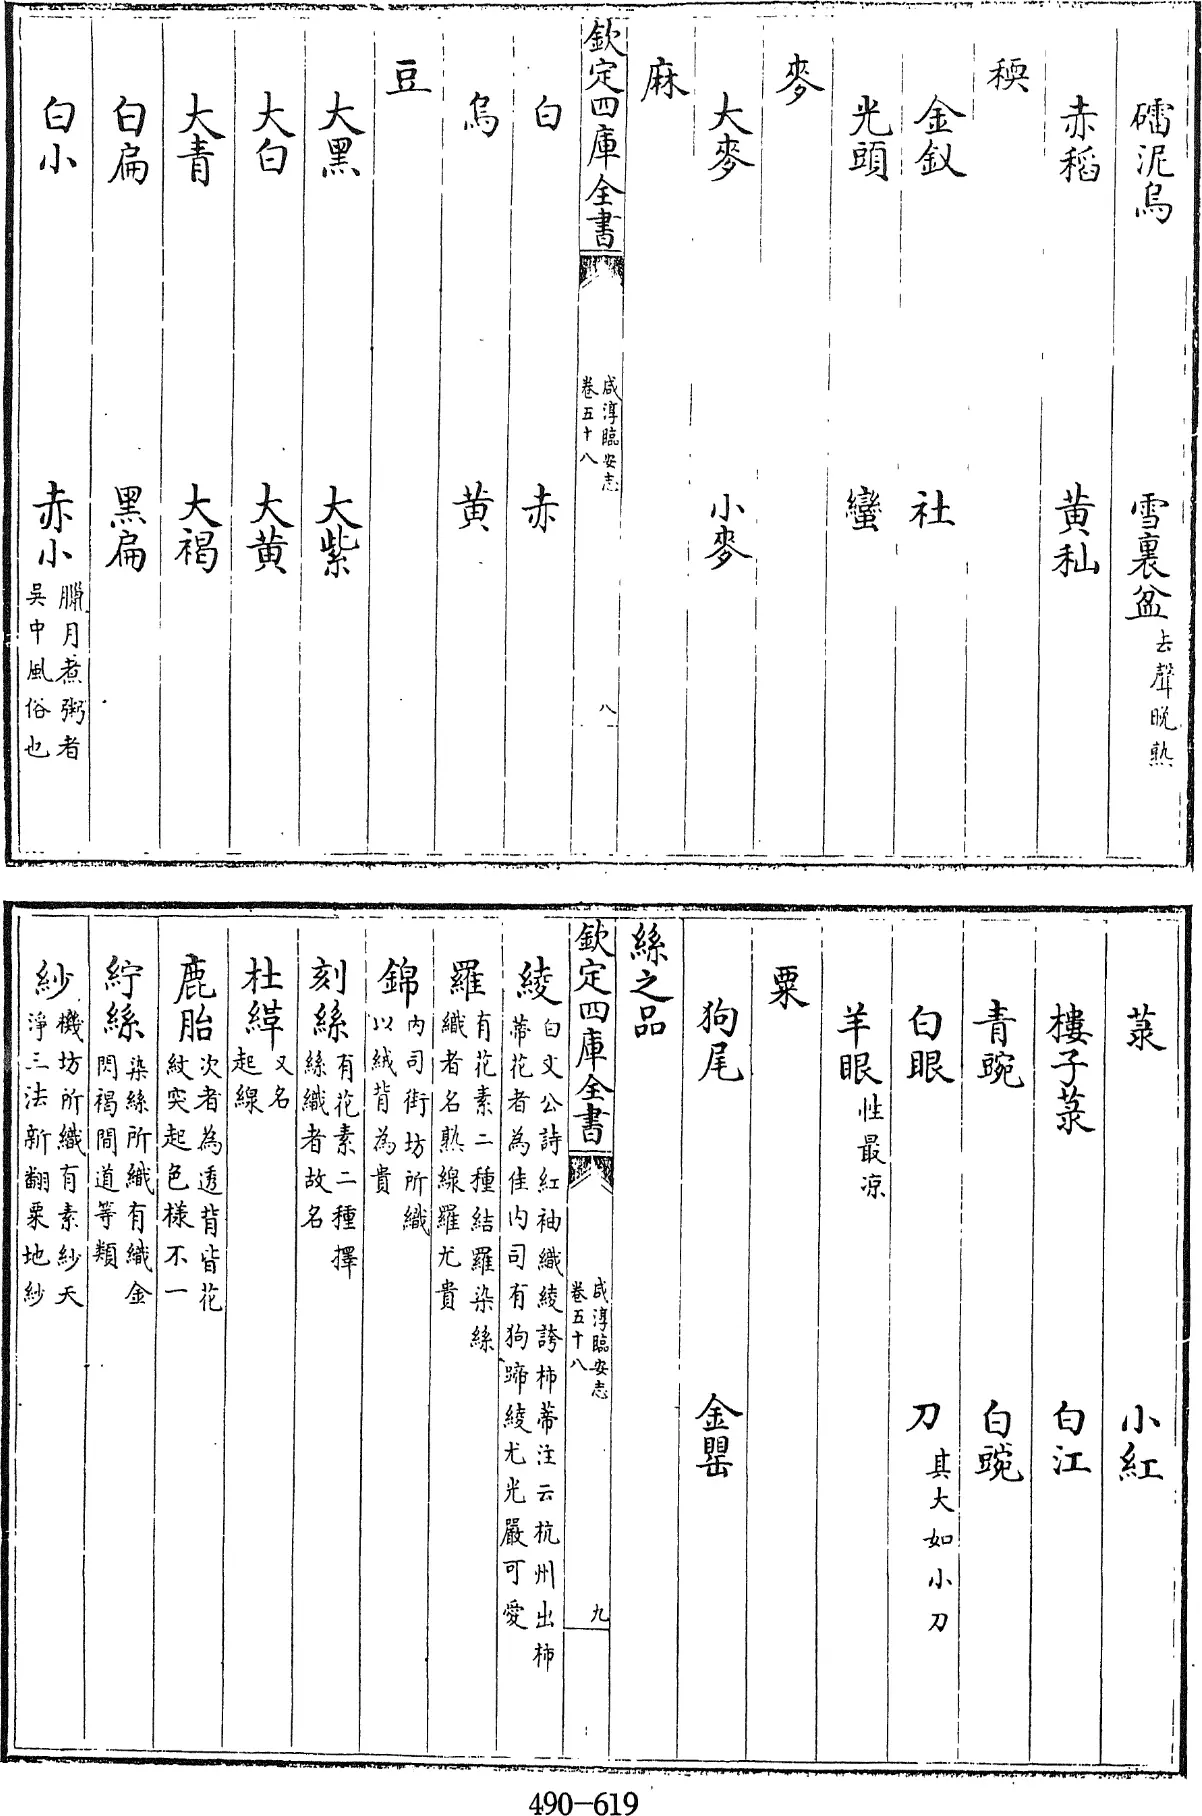 礌泥烏　雪裏盆去聲晩熟
赤稻　黄秈
稬
金釵　社
光頭　蠻
麥
大麥　小麥
麻
欽定四庫全書
咸淳臨安志
卷五十八
八
白　赤
烏　黄
豆
大黑　大紫
大白　大黄
大青　大褐
白扁　黑扁
白小　赤小臘月煮粥者
吳中風俗也
菉　小紅
樓子菉　白江
青豌　白豌
白眼　刀其大如小刀
羊眼性最凉
粟
狗尾　金罌
絲之品
欽定四庫全書
咸淳臨安志
卷五十八
九
綾白文公詩紅袖織綾誇柿蒂注云杭州出柿
蒂花者為佳内司有狗蹄綾尤光嚴可愛
羅有花素二種結羅染絲
織者名熟線羅尤貴
錦内司街坊所織
以絨背為貴
刻絲有花素二種擇
絲織者故名
杜緙又名
起線
鹿胎次者為透背皆花
紋突起色様不一
紵絲染絲所織有織金
閃褐間道等類
紗機坊所織有素紗天
淨三法新翻粟地紗
490-619